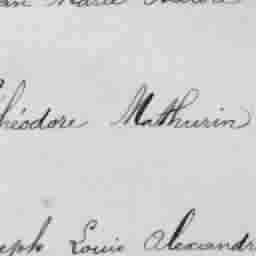 Marie
Théodore Mathurin
eph Louis Alexandr